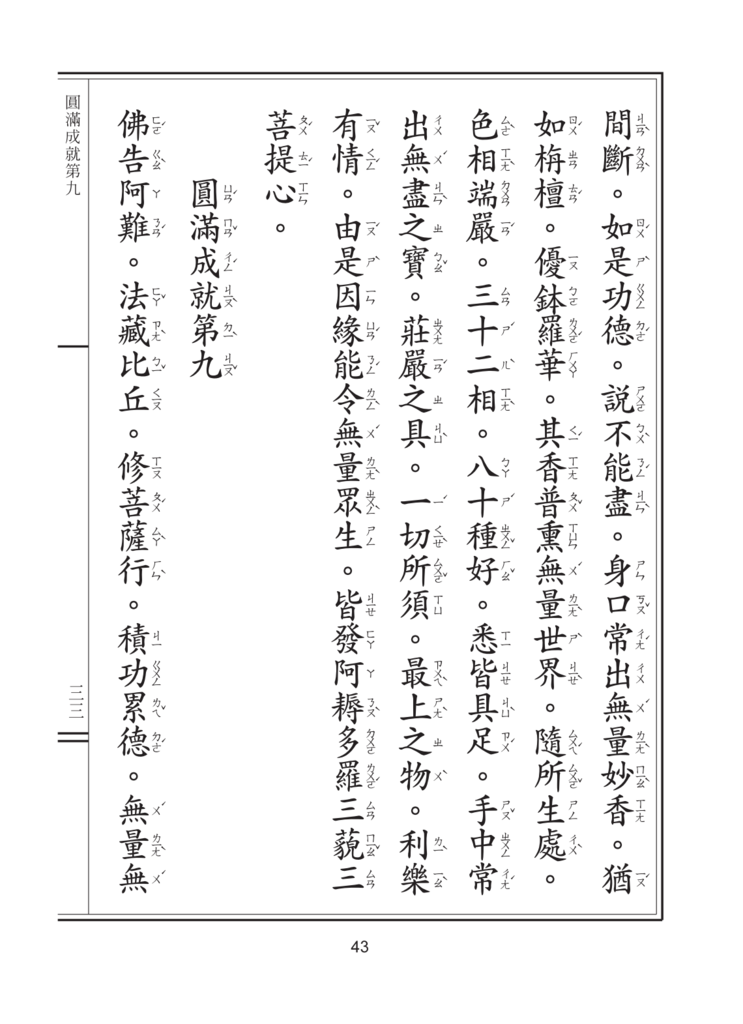 間斷。如是功德。說不能盡。身口常出無量妙香。猶
如栴檀。優鉢羅華。其香普熏無量世界。隨所生處。
色相端嚴。三十二相。八十種好。悉皆具足。手中常
出無盡之寶。莊嚴之具。一切所須。最上之物。利樂
有情。由是因緣能令無量眾生。皆發阿耨多羅三藐三
菩提心。
圓滿成就第九
佛告阿難。法藏比丘。修菩薩行。積功累德。無量無
圓滿成就第九
三三
43